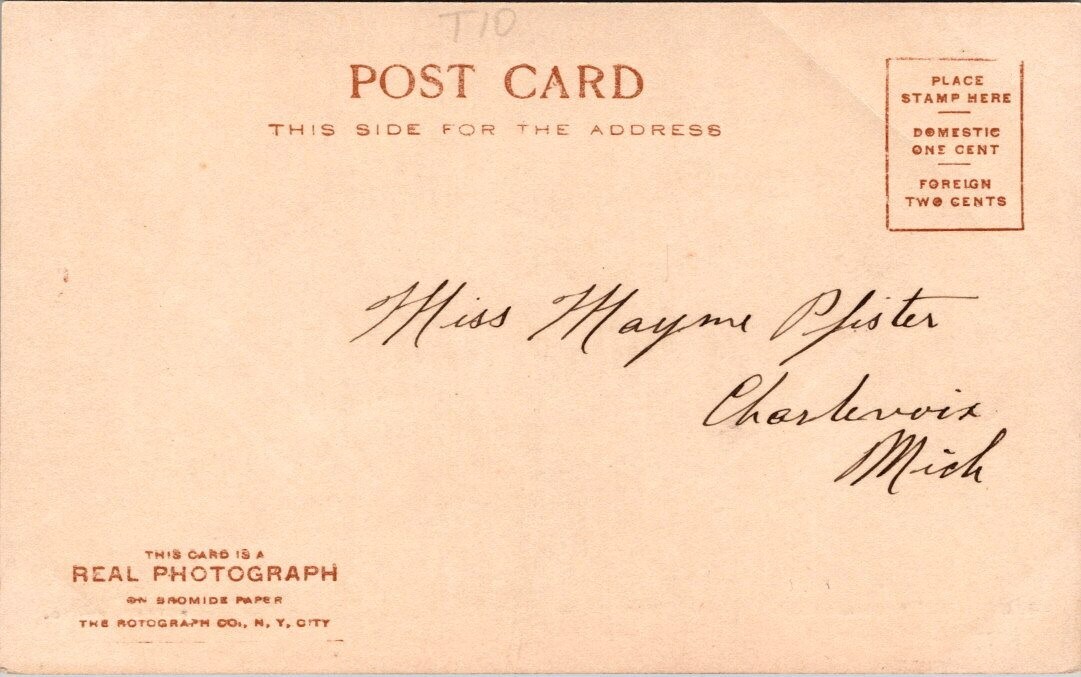 T10
POST CARD
THIS SIDE FOR THE ADDRESS
PLACE
STAMP HERE
DOMESTIC
ONE CENT
FOREIGN
TWO CENTS
Miss Mayme Pfister
Charlevoix
Mich
THIS CARD IS A
REAL PHOTOGRAPH
ON BROMIDE PAPER
THE ROTOGRAPH CO., N. Y. CITY